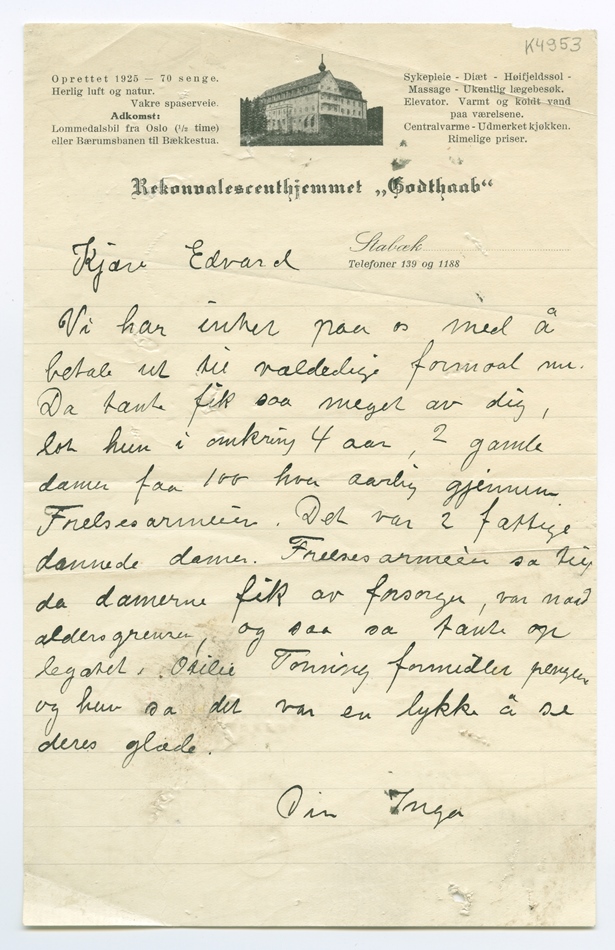 K4953
Oprettet 1925 — 70 senge.
Herlig luft og natur.
Vakre spaserveie.
Adkomst:
Lommedalsbil fra Oslo (½ time)
eller Bærumsbanen til Bækkestua.
Sykepleie - Diæt - Høifjeldssol -
Massage - Ukentlig lægebesøk.
Elevator. Varmt og koldt vand
paa værelsene.
Centralvarme - Udmerket kjøkken.
Rimelige priser.
Rekonvalescenthjemmet „Godthaab“
Stabæk
Telefoner 139 og 1188
Kjære Edvard
Vi har intet paa os med å
betale ut til vældedige formaal nu.
Da tante fik saa meget av dig,
lot hun i omkring 4 aar, 2 gamle
damer faa 100 hver aarlig gjennem
Frelsesarmeen. Det var 2 fattige
dannede damer. Frelsesarmeen sa
da damerne fik av forsorgen, var naad
aldersgrensen, og saa sa tante op
legatet. Otilie Tonning formidler pengene
og hun sa det var en lykke å se
deres glæde.
Din Inga